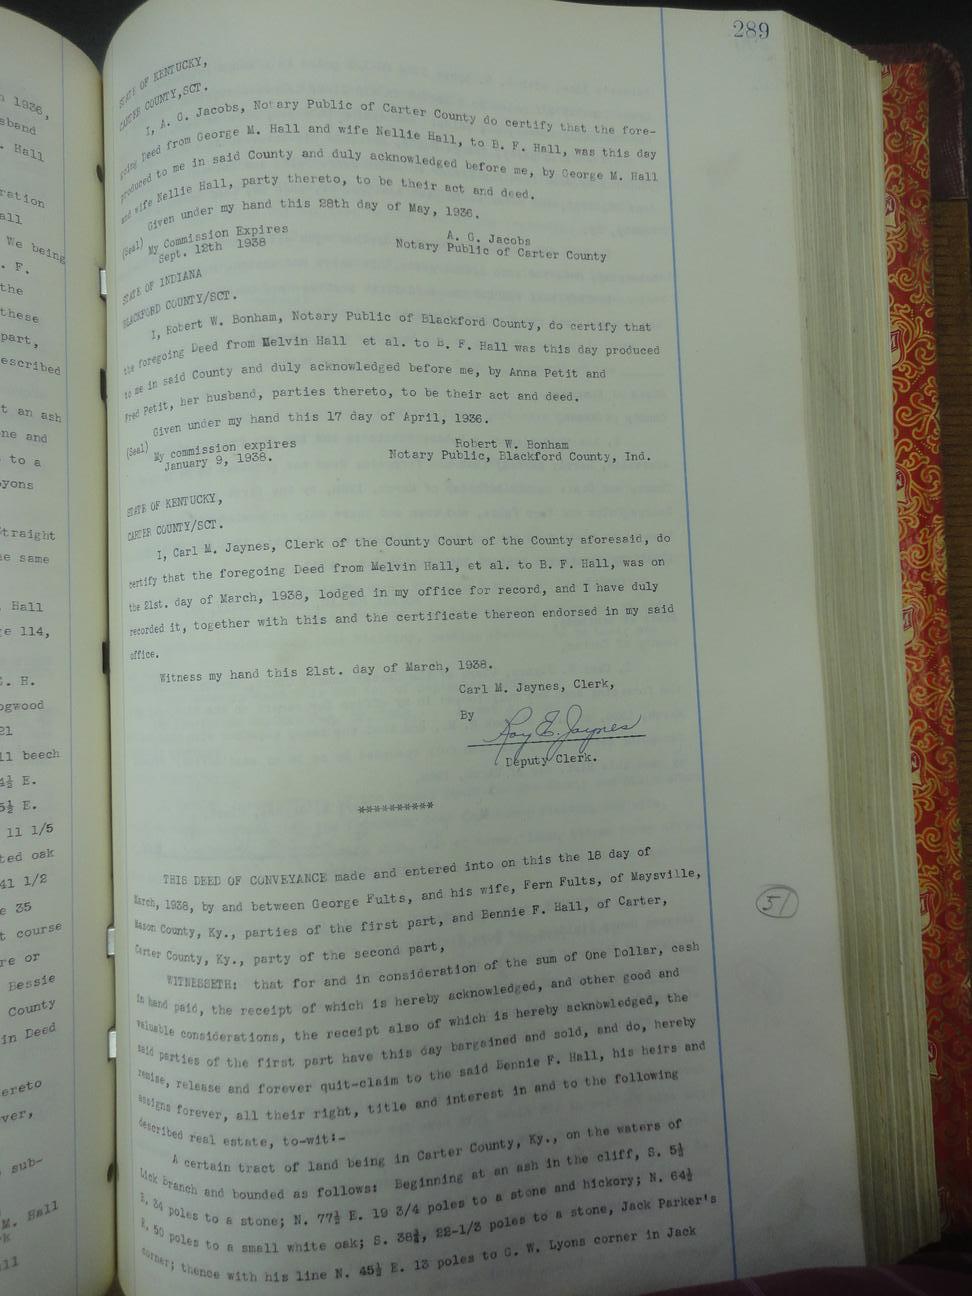 289
STATE OF KENTUCKY,
CARTER COUNTY,SCT.
I, A. G. Jacobs, Notary Public of Carter County do certify that the fore-
going Deed from George M. Hall and wife Nellie Hall, to B. F. Hall, was this day
produced to me in said County and duly acknowledged before me, by George M. Hall
and wife Nellie Hall, party thereto, to be their act and deed.
Given under my hand this 28th day of May, 1936.
(Seal) My Commission Expires
Sept. 12th 1938
A. G. Jacobs
Notary Public of Carter County
STATE OF INDIANA
BLACKFORD COUNTY/SCT.
I, Robert W. Bonham, Notary Public of Blackford County, do certify that
the foregoing Deed from Melvin Hall et al. to B. F. Hall was this day produced
to me in said County and duly acknowledged before me, by Anna Petit and
Fred Petit, her husband, parties thereto, to be their act and deed.
Given under my hand this 17 day of April, 1936.
(Seal) My commission expires
January 9, 1938.
Robert W. Bonham
Notary Public, Blackford County, Ind.
STATE OF KENTUCKY,
CARTER COUNTY/SCT.
I, Carl M. Jaynes, Clerk of the County Court of the County aforesaid, do
certify that the foregoing Deed from Melvin Hall, et al. to B. F. Hall, was on
the 21st. day of March, 1938, lodged in my office for record, and I have duly
recorded it, together with this and the certificate thereon endorsed in my said
office.
Witness my hand this 21st. day of March, 1938.
Carl M. Jaynes, Clerk,
By Roy E. Jaynes
Deputy Clerk.
**********
THIS DEED OF CONVEYANCE made and entered into on this the 18 day of
March, 1938, by and between George Fults, and his wife, Fern Fults, of Maysville,
Mason County, Ky., parties of the first part, and Bennie F. Hall, of Carter,
Carter County, Ky., party of the second part,
51
WITNESSETH: that for and in consideration of the sum of One Dollar, cash
in hand paid, the receipt of which is hereby acknowledged, and other good and
valuable considerations, the receipt also of which is hereby acknowledged, the
said parties of the first part have this day bargained and sold, and do, hereby
remise, release and forever quit-claim to the said Bennie F. Hall, his heirs and
assigns forever, all their right, title and interest in and to the following
described real estate, to-wit:-
A certain tract of land being in Carter County, Ky., on the waters of
Lick branch and bounded as follows: Beginning at an ash in the cliff, S. 5½
E. 34 poles to a stone; N. 77½ E. 19 3/4 poles to a stone and hickory; N. 64½
E. 50 poles to a small white oak; S. 38¾, 22-1/3 poles to a stone, Jack Parker's
corner; thence with his line N. 45½ E. 13 poles to G. W. Lyons corner in Jack